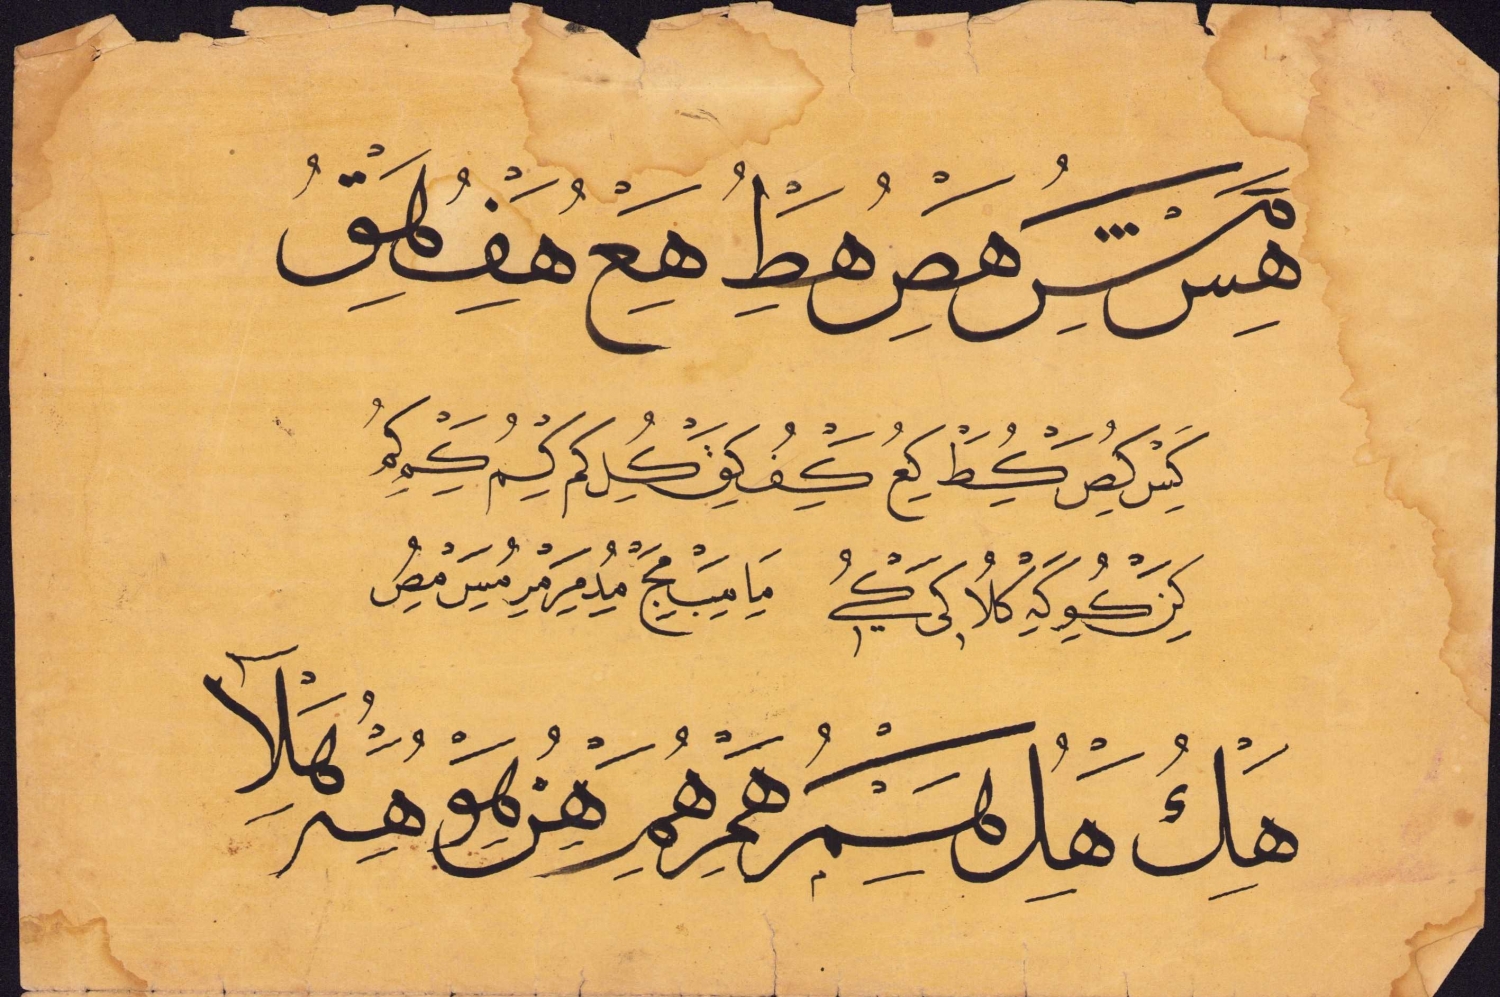 هس هش هص هط هع هف هق
كس كص كط كع كف كق كل كم كم كم كم
كن كو كه كلا كى كے ما مب مج مد مر مر مس مص
هك هل هم هم هم هن هو هه هلا